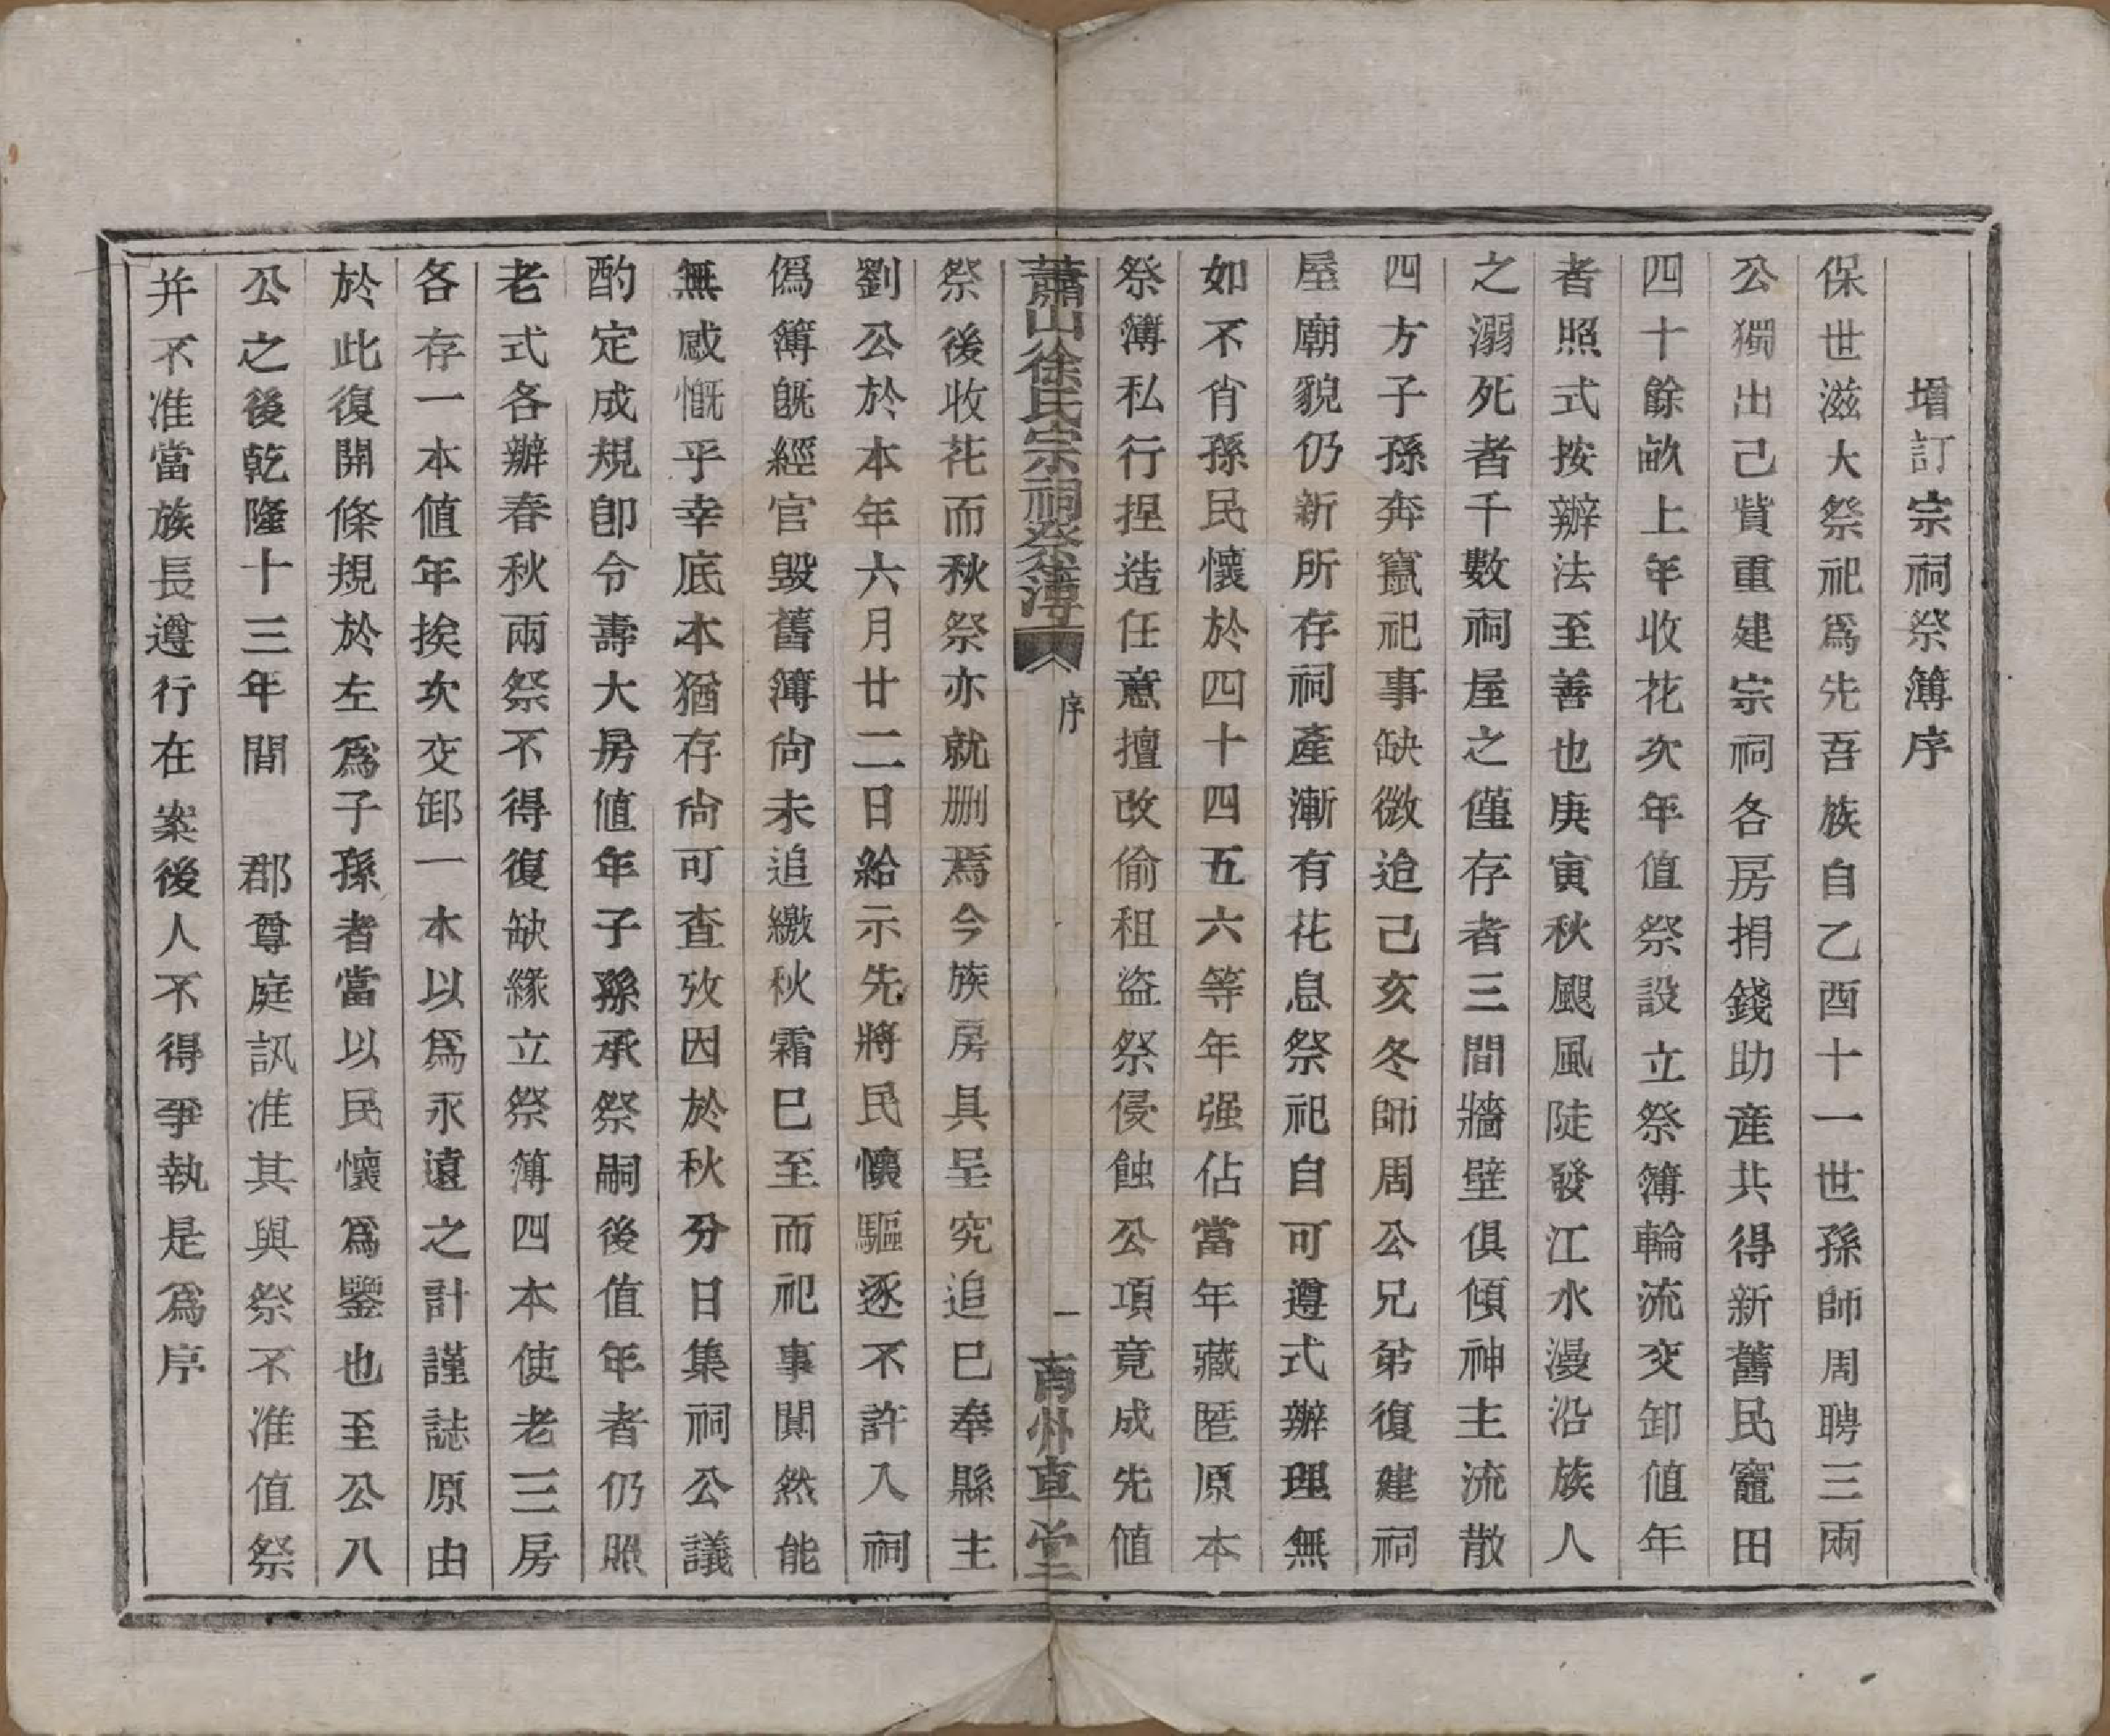 增訂宗祠祭簿序
保世滋大祭祀爲先吾族自乙酉十一世孫師周聘三兩
公獨出己貲重建宗祠各房捐錢助產共得新舊民竈田
四十餘畝上年收花次年值祭設立祭簿輪流交卸值年
者照式按辦法至善也庚寅秋颶風陡發江水漫沿族人
之溺死者千數祠屋之僅存者三間牆壁俱傾神主流散
四方子孫奔竄祀事缺微迨己亥冬師周公兄弟復建祠
屋廟貌仍新所存祠產漸有花息祭祀自可遵式辦理無
如不肖孫民懷於四十四五六等年强佔當年藏匿原本
祭簿私行捏造任意擅改偷租盜祭侵蝕公項竟成先值
蕭山徐氏宗祠祭簿 序 一 南州草堂
祭後收花而秋祭亦就删焉今族房具呈究追已奉縣主
劉公於本年六月廿二日給示先將民懷驅逐不許入祠
僞簿旣經官毀舊簿尙未追繳秋霜已至而祀事闃然能
無感慨乎幸底本猶存尙可查攷因於秋分日集祠公議
酌定成規卽令壽大房値年子孫承祭嗣後值年者仍照
老式各辦春秋兩祭不得復缺緣立祭簿四本使老三房
各存一本値年挨次交卸一本以爲永遠之計謹誌原由
於此復開條規於左爲子孫者當以民懷爲鑒也至公八
公之後乾隆十三年間　郡尊庭訊准其與祭不准值祭
并不准當族長遵行在案後人不得爭執是爲序